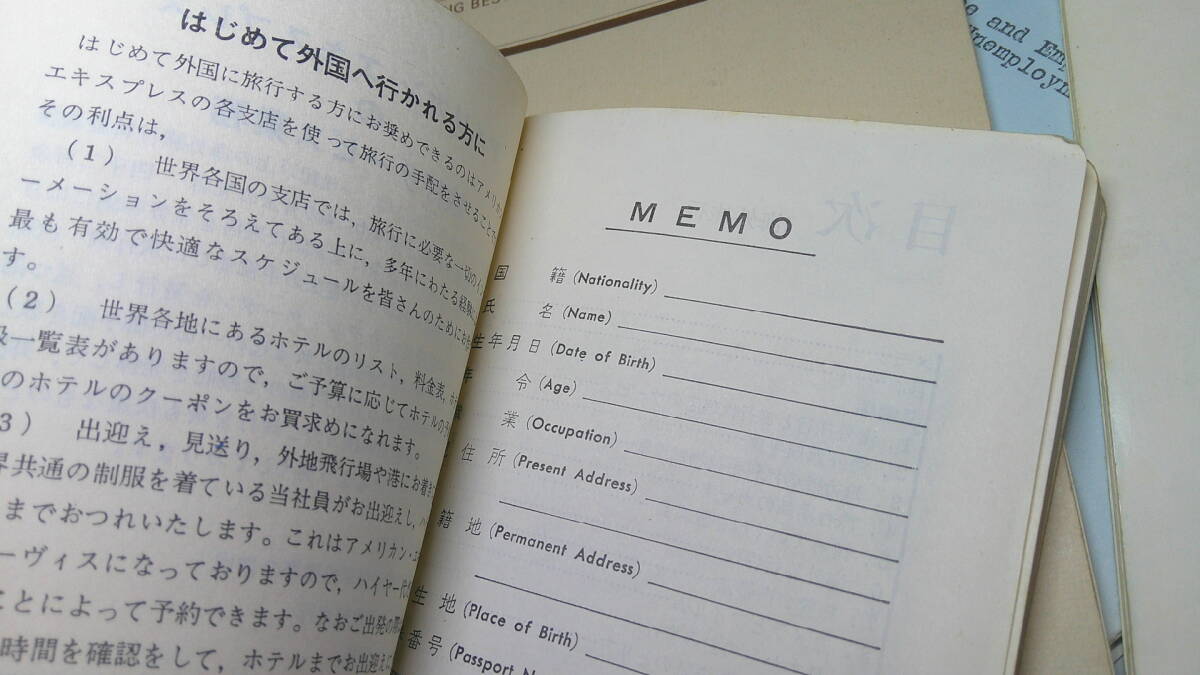 はじめて外国へ行かれる方に
はじめて外国に旅行する方にお奨めできるのはアメリカ
エキスプレスの各支店を使って旅行の手配をさせることで
その利点は,
(1) 世界各国の支店では,旅行に必要な一切のイ
ーメーションをそろえてある上に,多年にわたる経験
最も有効で快適なスケジュールを皆さんのためにお
す。
(2) 世界各地にあるホテルのリスト,料金表,ホ
一覧表がありますので,ご予算に応じてホテルの
のホテルのクーポンをお買求めになれます。
3) 出迎え,見送り,外地飛行場や港にお着き
界共通の制服を着ている当社員がお出迎えし,
までおつれいたします。これはアメリカン・エ
ーヴィスになっておりますので,ハイヤー代
ことによって予約できます。なおご出発の
時間を確認をして,ホテルまでお出迎えに
MEMO
国籍 (Nationality)
氏名 (Name)
生年月日 (Date of Birth)
年令 (Age)
業 (Occupation)
住所 (Present Address)
籍地 (Permanent Address)
生地 (Place of Birth)
番号 (Passport N
目次
NG BES
and Emp
Unemploym